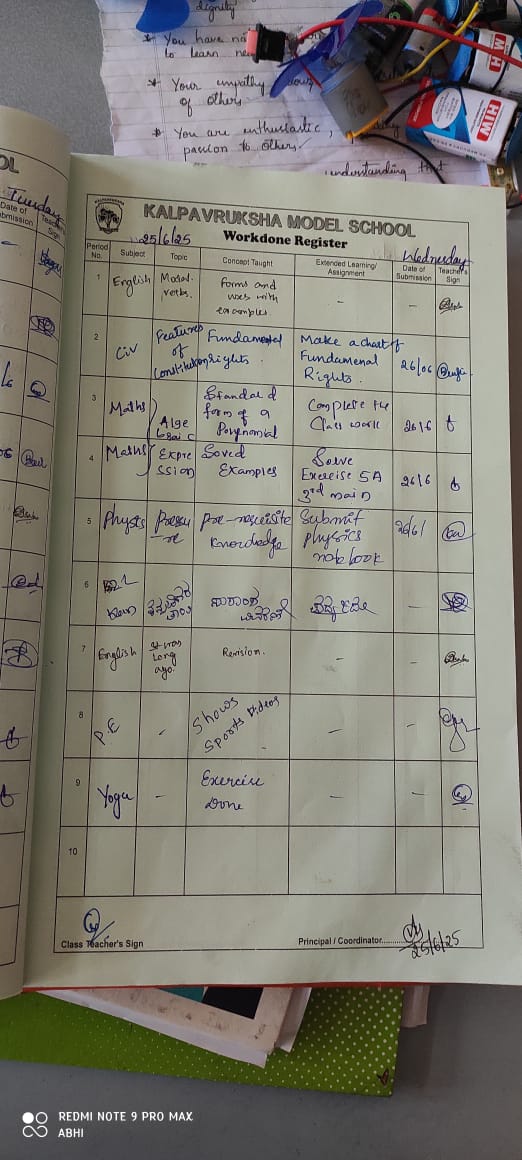 dignity
* You have no
to learn ne
* Your empathy
of others
* You are enthusiastic,
passion to others
understanding that
OL
Tuesday
Date of
bmission
Teacher's
Sign
KALPAVRUKSHA MODEL SCHOOL
25/6/25 Workdone Register Wednesday
Period No. Subject Topic Concept Taught Extended Learning/ Assignment Date of Submission Teacher's Sign
1 English Modal verbs. Forms and uses with examples. - -
2 Civ Features of Constitution Fundamental Rights. Make a chart of Fundamenal Rights. 26/06
3 Maths Algebraic Standard form of a Polynomial Complete the Class work 26/6
4 Maths Expression Soved Examples Solve Exercise 5A 3rd main 26/6
5 Physis Pressure Pre-requisite Knowledge Submit physics notebook 26/6/
6
7 English It was Long ago. Revision. - -
8 P.E - Shows Sports Videos - -
9 Yoga - Exercise Done - -
10
Class Teacher's Sign Principal / Coordinator
25/6/25
HIW
REDMI NOTE 9 PRO MAX
ABHI